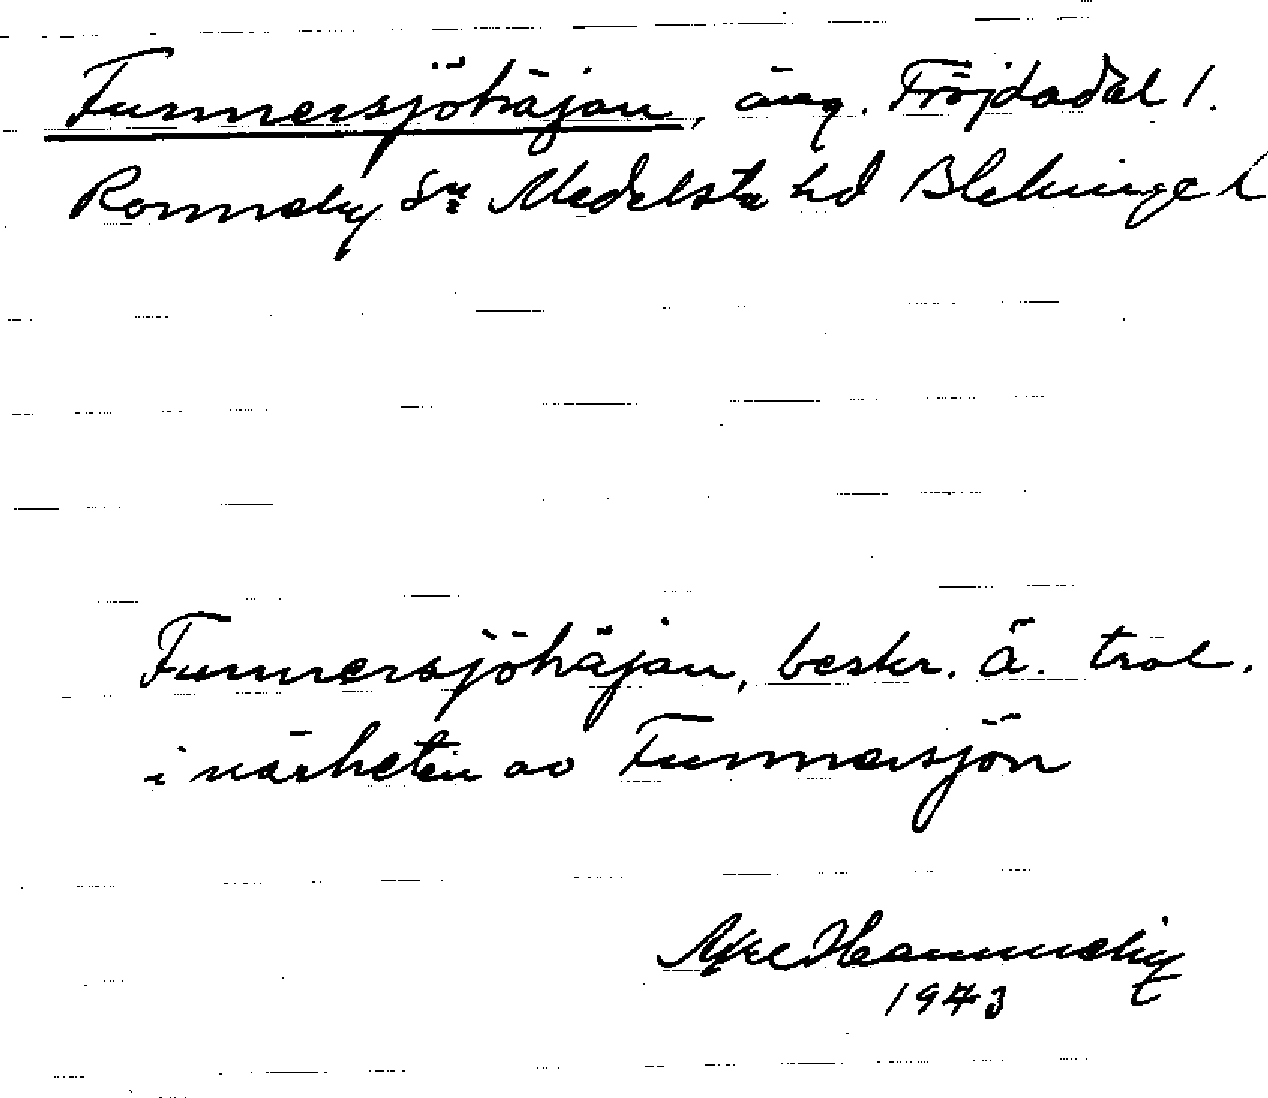 Funnersjöhäjan, äng. Fröjdadal 1.
Ronneby Sn Medelsta hd Blekinge l
Funnersjöhäjan, beskr. ä. trol.
i närheten av Funnersjön
Axel Hammneby
1943